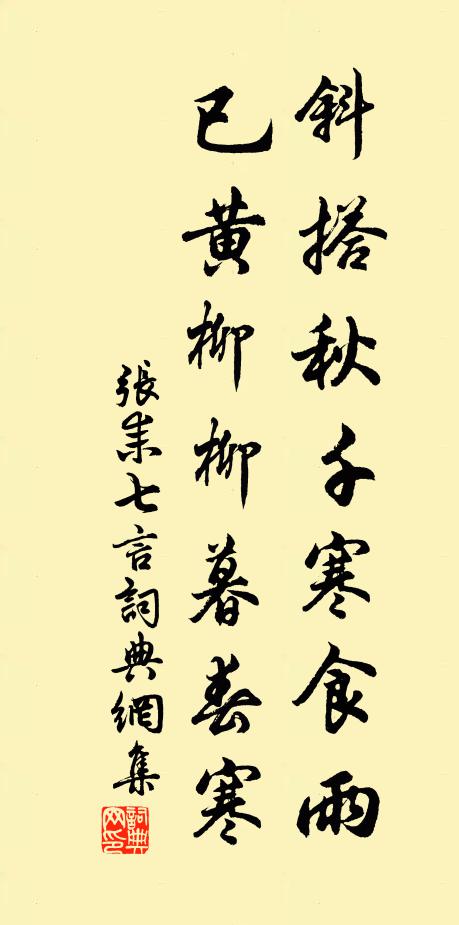 斜搭秋千寒食雨
已黄柳柳暮春寒
張耒七言詞典網集
詞典网印